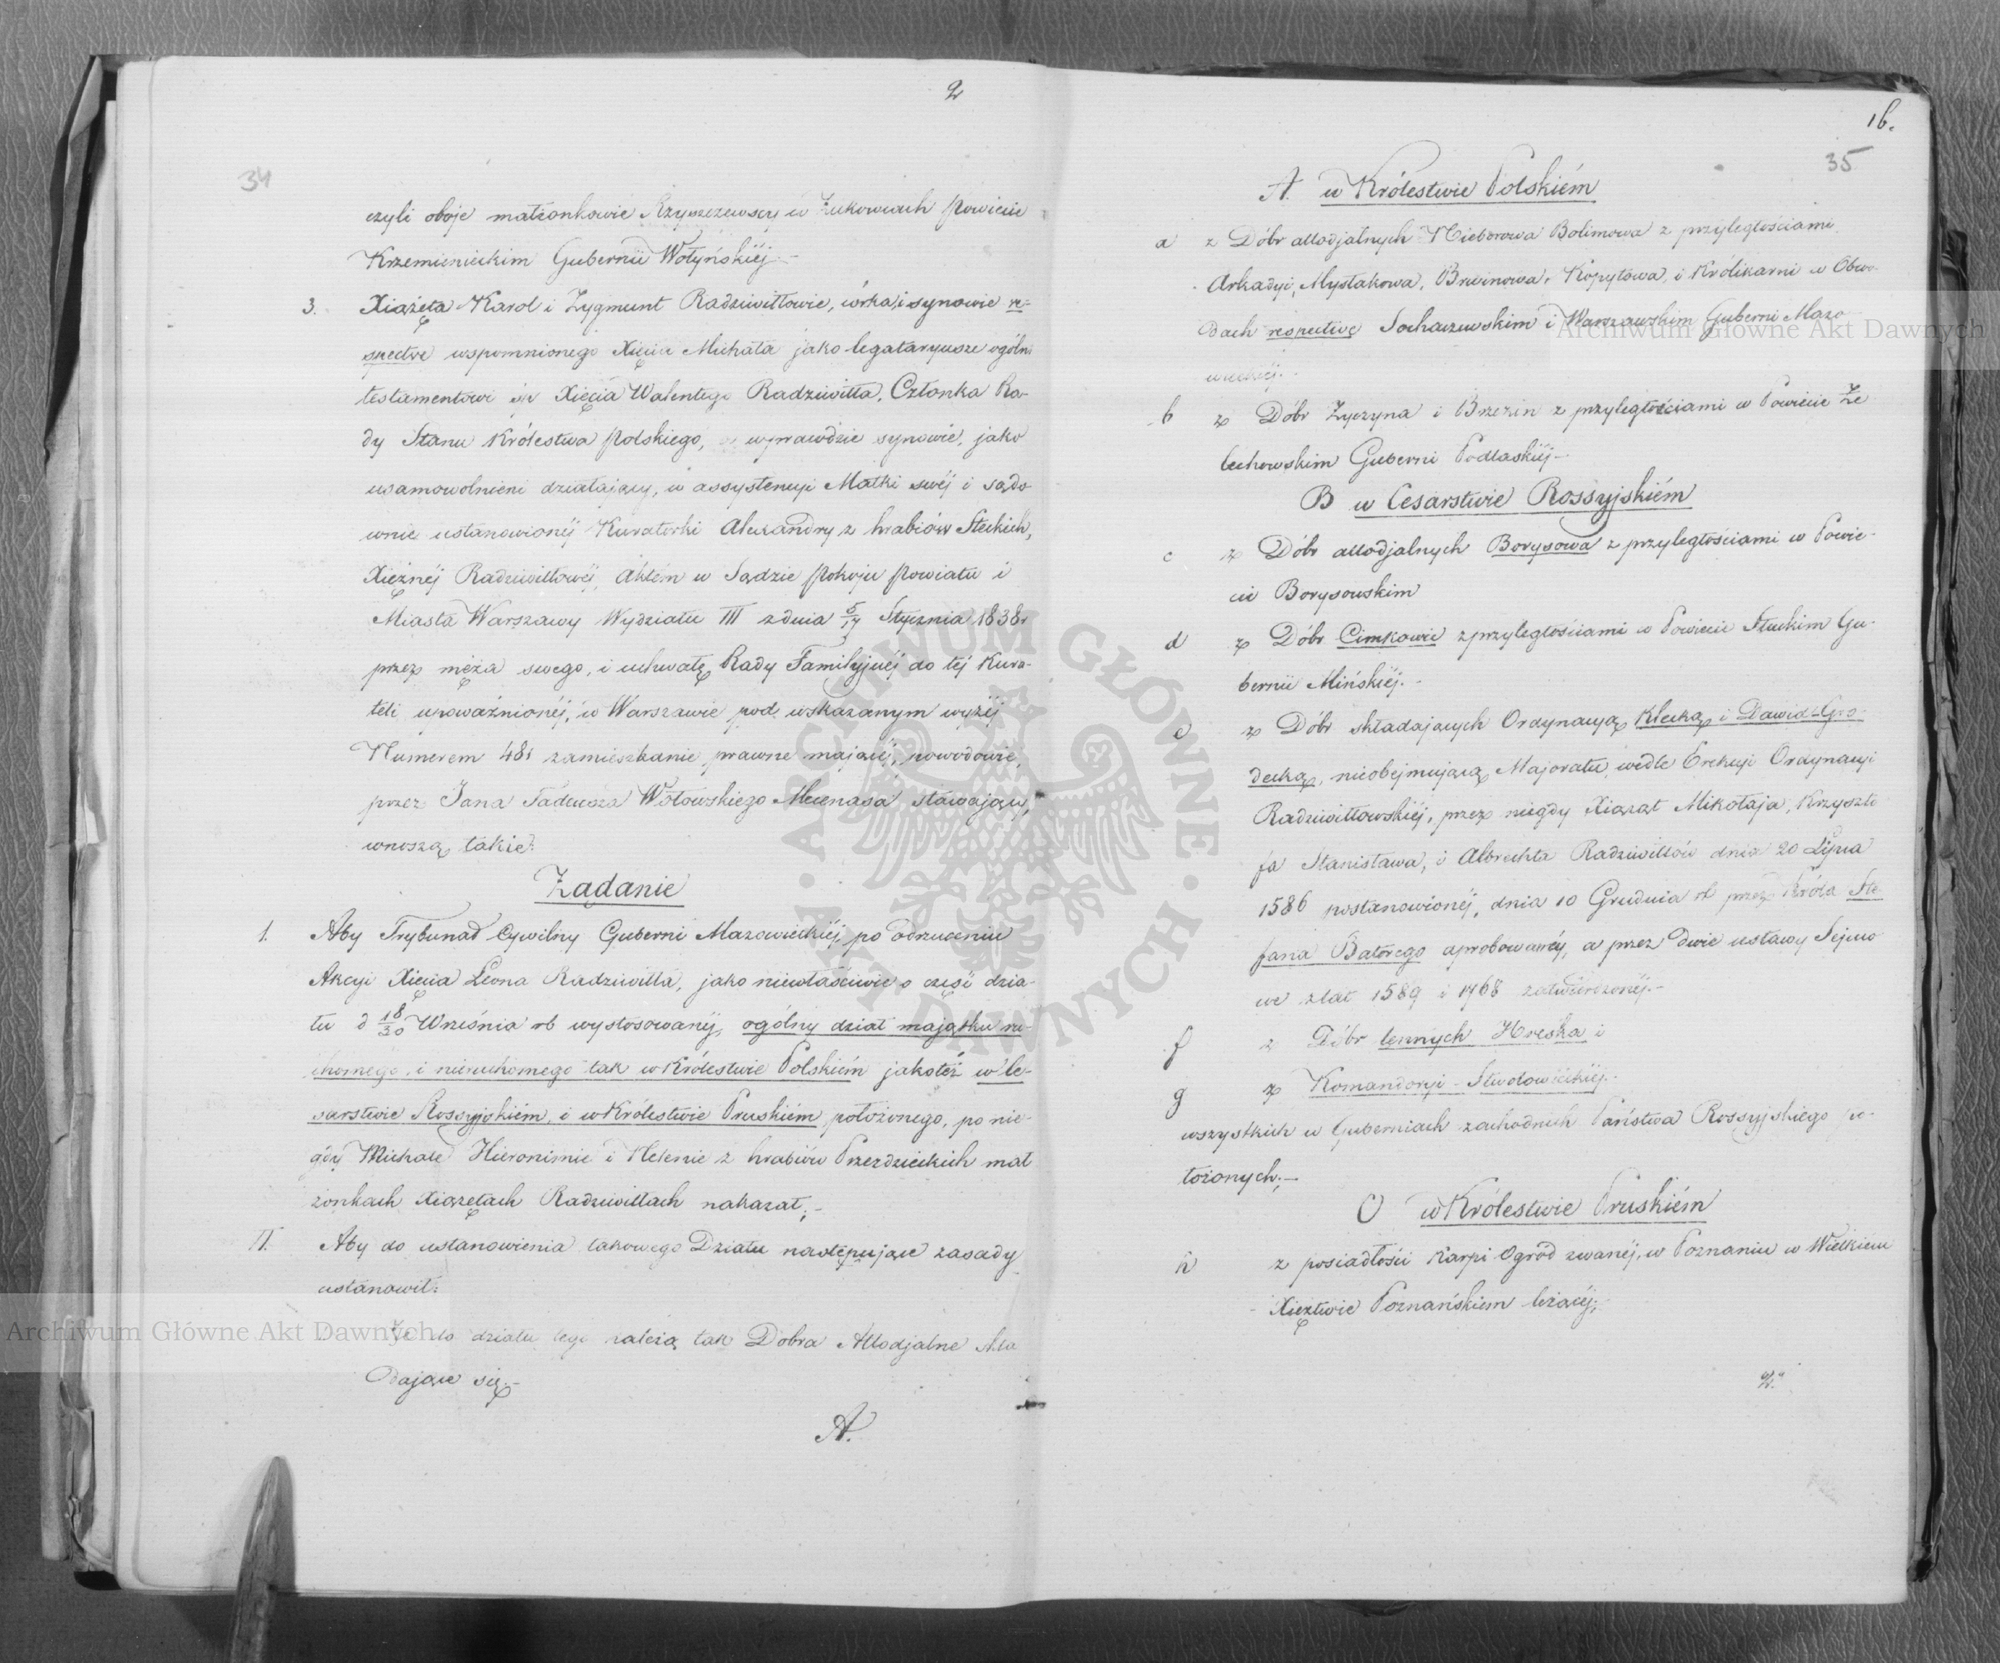 2
34
czyli oboje małżonkowie Rzyszczewscy w Żukowcach Powiecie
Krzemienieckim Gubernii Wołyńskiéj.-
3. Xiążęta Karol i Zygmunt Radziwiłłowie, córka, i synowie re-
spective wspomnionego Xięcia Michała jako legataryusze ogólni
testamentowi Xięcia Walentego Radziwiłła, Członka Ra-
dy Stanu Królestwa Polskiego, wprawdzie synowie, jako
usamowolnieni działający, w assystencyi Matki swéj i sądo-
wnie ustanowionéj Kuratorki Alexandry z hrabiów Steckich,
Xiężnéj Radziwiłłowéj, Aktem w Sądzie Pokoju Powiatu i
Miasta Warszawy Wydziału III z dnia 5/17 Stycznia 1838r
przez męża swego, i uchwałę Rady Familyjnéj do téj Kura-
teli upoważnionéj, w Warszawie pod wskazanym wyżéj
Numerem 481 zamieszkanie prawne mającéj, powodowie,
przez Jana Tadeusza Wołowskiego Mecenasa stawający,
wnoszą takie:
Żądanie
1. Aby Trybunał Cywilny Guberni Mazowieckiéj, po odrzuceniu
Akcyi Xięcia Leona Radziwiłła, jako niewłaściwie o część dzia-
łu d 18/30 Września rb wystosowanéj, ogólny dział majątku ru-
chomego i nieruchomego tak w Królestwie Polskiém jakotéż w Ce-
sarstwie Rossyjskiém, i w Królestwie Pruskiém położonego, po nie-
gdy Michale Hieronimie i Helenie z hrabiów Przezdzieckich mał
żonkach Xiążętach Radziwiłłach nakazał;-
II. Aby do ustanowienia takowego Działu następujące zasady
ustanowił:
Że do działu tego należą tak Dobra Allodjalne skła
dające się:-
A.
16.
35
A. w Królestwie Polskiém
a z Dóbr allodjalnych Nieborowa Bolimowa z przyległościami
Arkadyi, Mysłakowa, Brwinowa, Kopytowa, i Królikarni w Obwo-
dach respective Sochaczewskim i Warszawskim Guberni Mazo
wieckiéj.-
b z Dóbr Życzyna i Brzezin z przyległościami w Powiecie Że
lechowskim Guberni Podlaskiéj-
B w Cesarstwie Rossyjskiém
c z Dóbr allodjalnych Borysowa z przyległościami w Powie-
cie Borysowskim
d z Dóbr Cimkowic z przyległościami w Powiecie Słuckim Gu-
bernii Mińskiéj.-
e z Dóbr składających Ordynacyą Klecką i Dawid-Gro-
decką, nieobejmującą Majoratu, wedle Erekcyi Ordynacyi
Radziwiłłowskiéj, przez niegdy Xiążąt Mikołaja, Krzyszto
fa Stanisława, i Albrechta Radziwiłłów dnia 20 Lipca
1586 postanowionéj, dnia 10 Grudnia rb przez Króla Ste-
fana Batorego aprobowanéj, a przez dwie ustawy Sejmo
we z lat 1589 i 1768 zatwierdzonéj.-
f z Dóbr lennych Hreska i
g z Komandoryi-Stwołowickiéj.-
wszystkich w Guberniach zachodnich Państwa Rossyjskiego po-
łożonych;-
C w Królestwie Pruskiém
h z posiadłości Karpi Ogród zwanéj, w Poznaniu w Wielkiem
Xięztwie Poznańskiem leżącéj;-
2.°
Archiwum Główne Akt Dawnych
Archiwum Główne Akt Dawnych
ARCHIWUM GŁÓWNE · AKT DAWNYCH ·